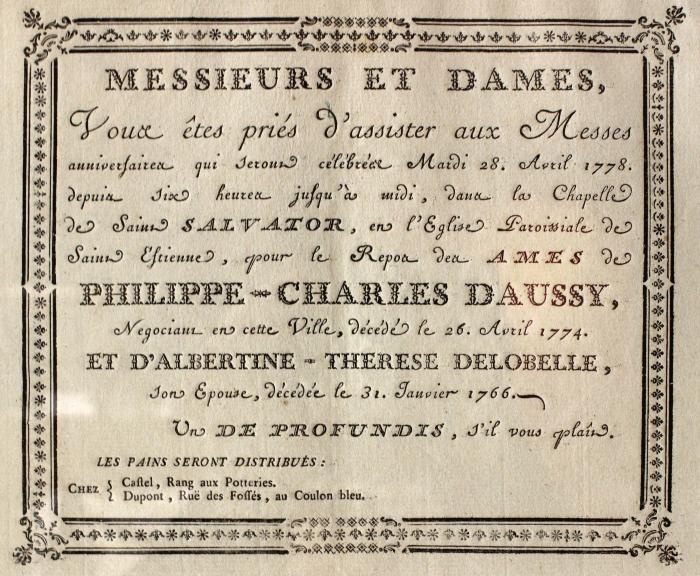 MESSIEURS ET DAMES,
Vous êtes priés d'assister aux Messes
anniversaires qui seront célébrées Mardi 28. Avril 1778.
depuis six heures jusqu'à midi, dans la Chapelle
de Saint SALVATOR, en l'Eglise Paroissiale de
Saint Estienne, pour le Repos des AMES de
PHILIPPE-CHARLES DAUSSY,
Negociant en cette Ville, décédé le 26. Avril 1774.
ET D'ALBERTINE-THERESE DELOBELLE,
son Epouse, décédée le 31. Janvier 1766.
Un DE PROFUNDIS, s'il vous plaît.
LES PAINS SERONT DISTRIBUÉS :
CHEZ { Castel, Rang aux Potteries.
Dupont, Ruë des Fossés, au Coulon bleu.